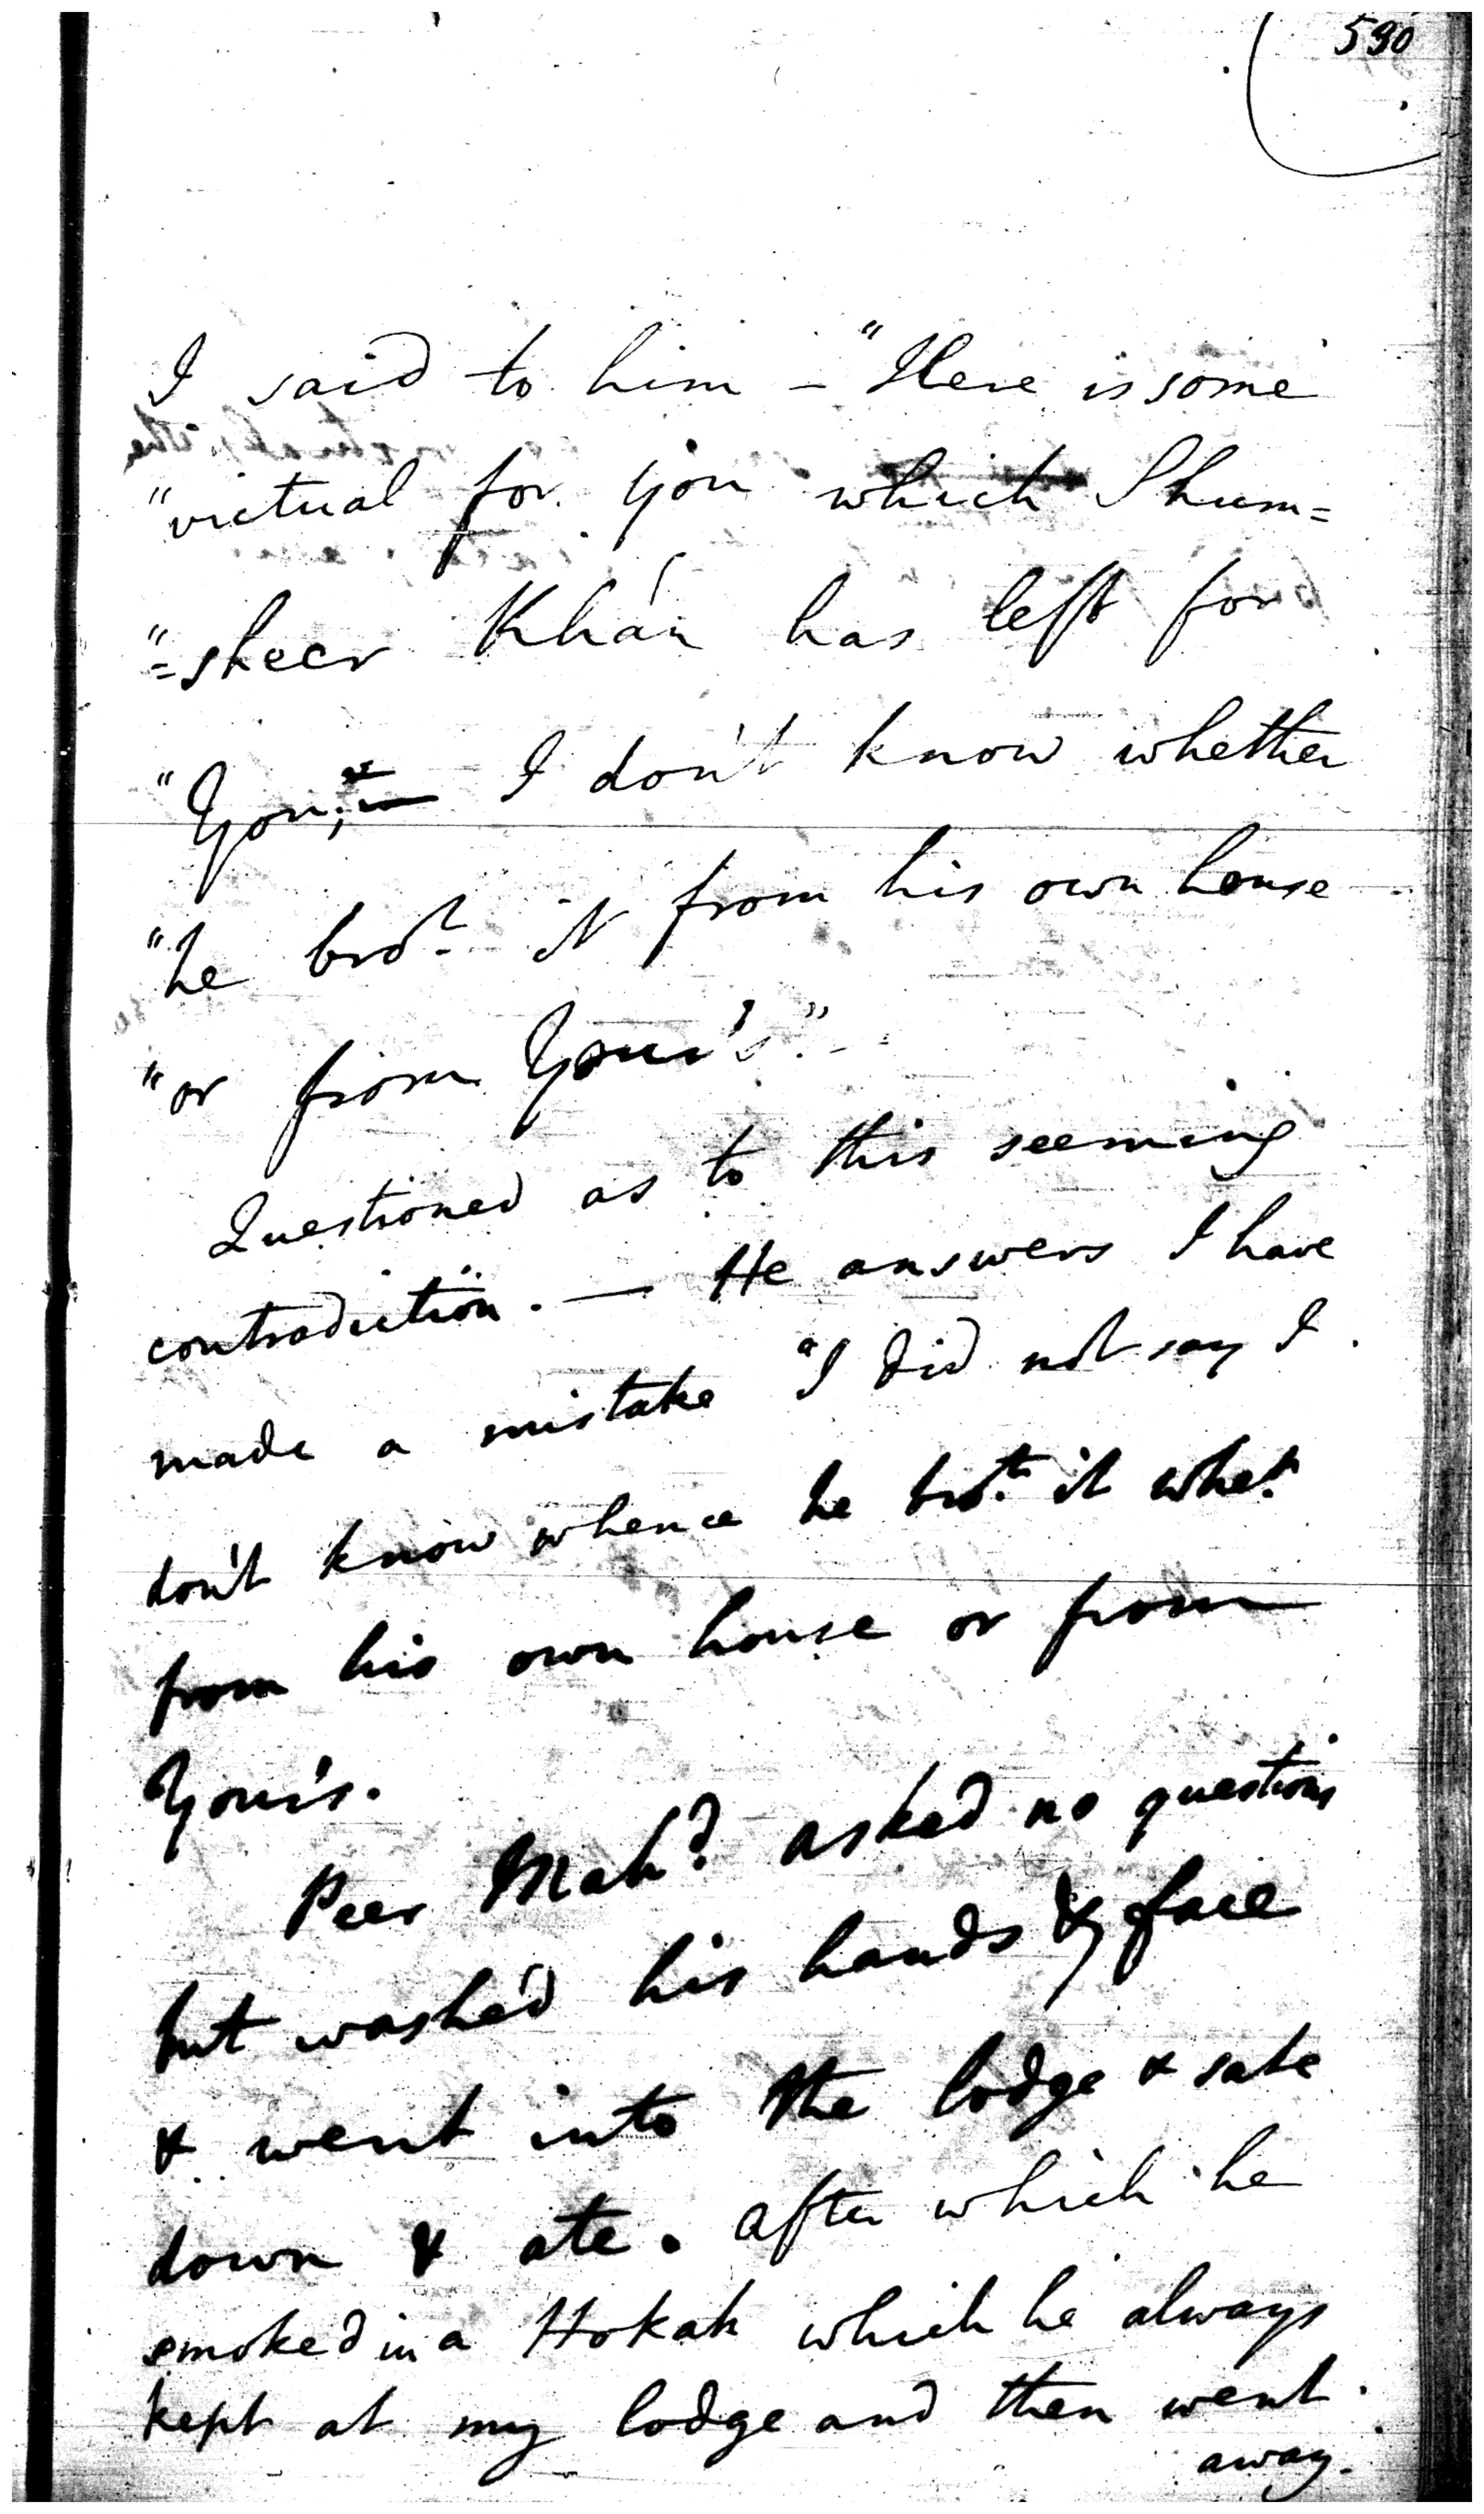 590
I said to him – "Here is some
"victual for you which Shum=
"=sheer Khán has left for
"You; I don't know whether
"he brot. it from his own house
"or from Your's."–
Questioned as to this seeming
contradiction. — He answers I have
made a mistake "I did not say I
don't know whence he brot. it whe.r
from his own house or from
Your's.
Peer Mahd. asked no questions
but washe'd his hands & face
& went into the lodge & sate
down & ate. after which he
smoked in a Hokah which he always
kept at my lodge and then went
away.